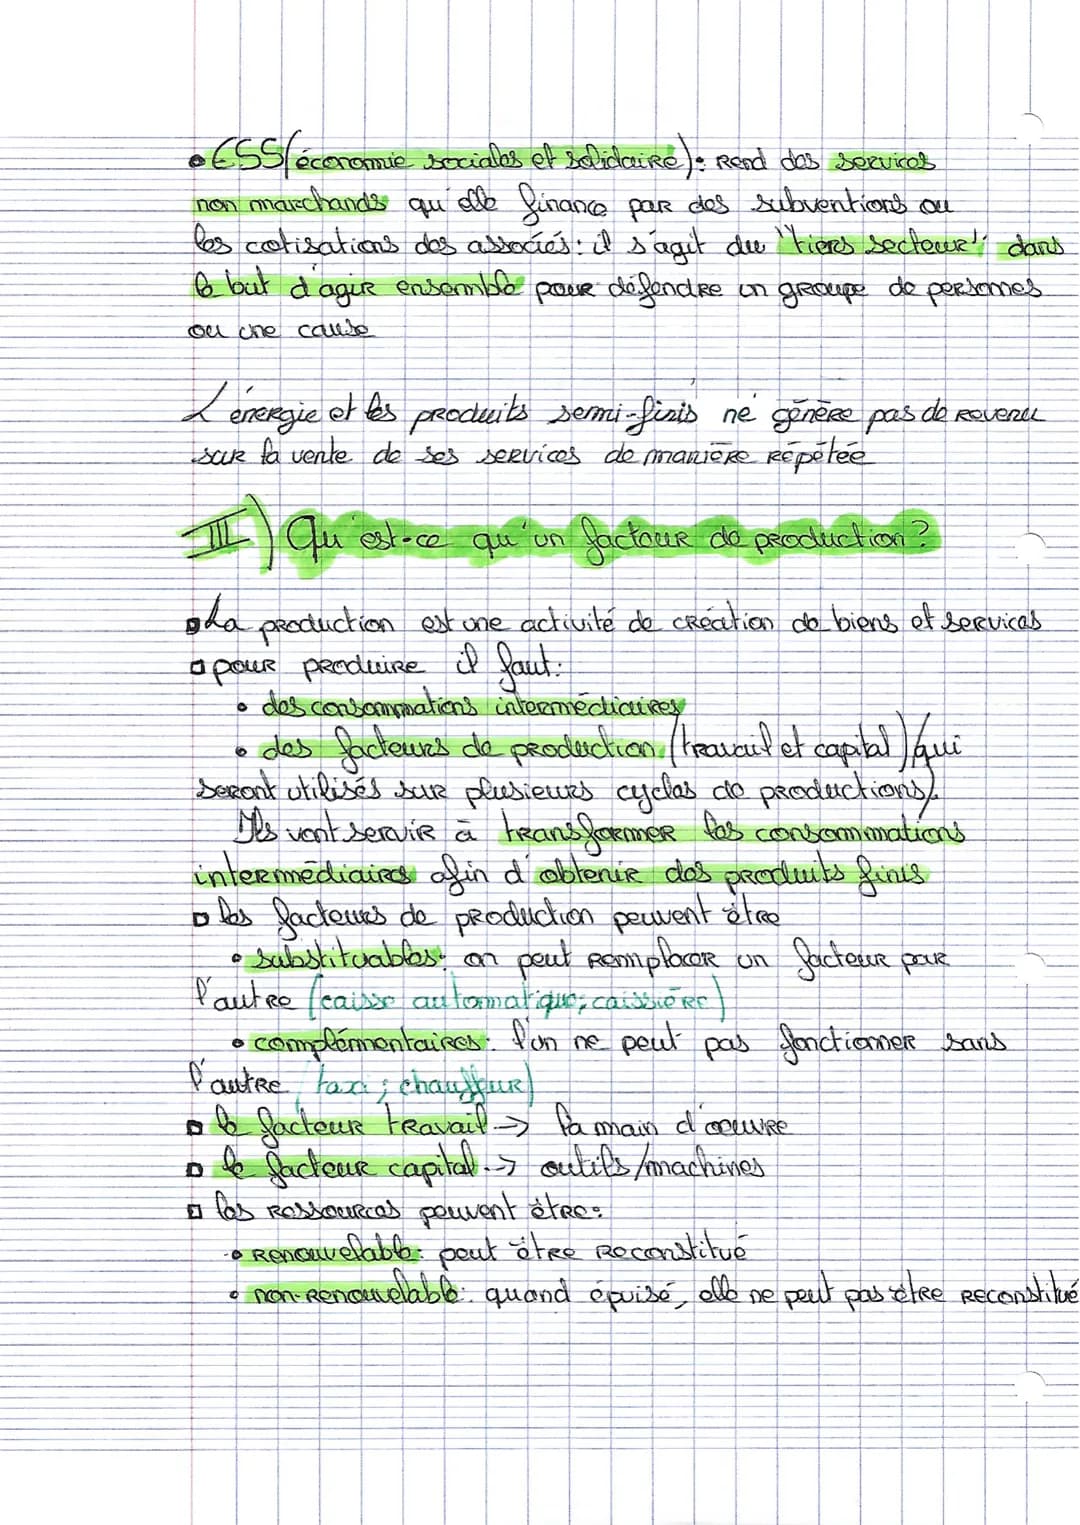 • ESS (économie sociales et solidaire): Rend des services
non marchands qu'elle finance par des subventions ou
les cotisations des associés: il s'agit du "tiers secteur"; dans
le but d'agir ensemble pour défendre un groupe de personnes
ou une cause
L'énergie et les produits semi-finis ne génère pas de revenu
sur la vente de ses services de manière répétée
III) Qu'est-ce qu'un facteur de production?
▫ La production est une activité de création de biens et services
▫ pour produire il faut:
• des consommations intermédiaires
• des facteurs de production (travail et capital) (qui
seront utilisés sur plusieurs cycles de productions).
Ils vont servir à transformer les consommations
intermédiaires afin d'obtenir des produits finis
▫ les facteurs de production peuvent être
• substituables: on peut remplacer un facteur par
l'autre (caisse automatique; caissière)
• complémentaires: l'un ne peut pas fonctionner sans
l'autre (taxi; chauffeur)
▫ le facteur travail → la main d'oeuvre
▫ le facteur capital → outils/machines
▫ les ressources peuvent être:
• renouvelable: peut être reconstitué
• non-renouvelable: quand épuisé, elle ne peut pas être reconstitué